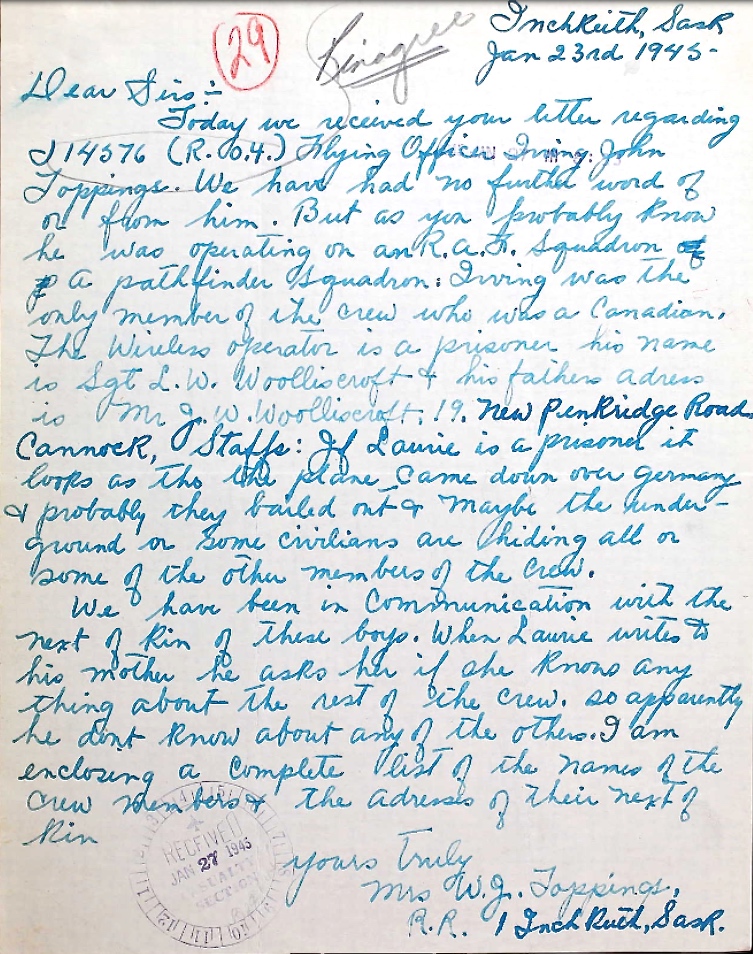 29
InchKeith, Sask
Jan 23rd 1945-
Dear Sirs:-
Today we received your letter regarding
J14576 (R.O.4.) Flying Officer Irving John
Toppings. We have had no further word of
or from him. But as you probably know
he was operating on an R.a.F. Squadron
A pathfinder Squadron: Irving was the
only member of the crew who was a Canadian.
The Wireless operator is a prisoner his name
is Sgt L.W. Woolliscroft & his fathers adress
is Mr J.W. Woolliscroft. 19. New Penkridge Road.
Cannock, Staffs: If Laurie is a prisoner it
looks as tho the plane came down over germany
& probably they bailed out & Maybe the under-
ground or some civilians are hiding all or
some of the other members of the Crew.
We have been in Communication with the
next of Kin of these boys. When Laurie writes to
his mother he asks her if she knows any
thing about the rest of the crew. so apparently
he dont know about any of the others. I am
enclosing a complete list of the names of the
crew members & the adresses of their next of
Kin
yours truly
Mrs W.J. Toppings,
R.R. 1 InchKuth, Sask.
RECEIVED
JAN 27 1945
CASUALTY
SECTION